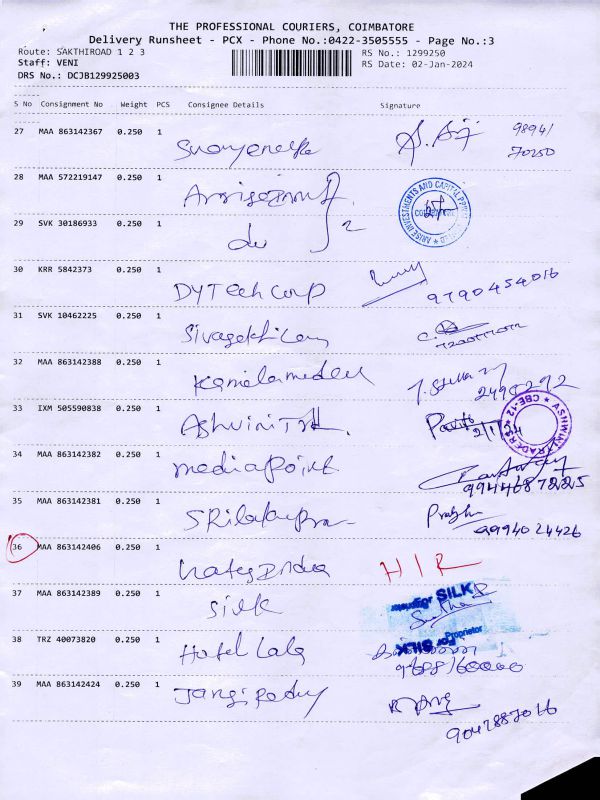 THE PROFESSIONAL COURIERS, COIMBATORE
Delivery Runsheet - PCX - Phone No.:0422-3505555 - Page No.:3
Route: SAKTHIROAD 1 2 3 RS No.: 1299250
Staff: VENI RS Date: 02-Jan-2024
DRS No.: DCJB129925003
S No Consignment No Weight PCS Consignee Details Signature
27 MAA 863142367 0.250 1 98941
70250
28 MAA 572219147 1 0.250 1
ARISE INVESTMENTS AND CAPITAL
29 SVK 30186933 0.250 1 do 2
30 KRR 5842373 0.250 1 DYTech corp 9790454016
31 SVK 10462225 0.250 1
32 MAA 863142388 0.250 1 J. Stella
2490292
33 IXM 505590838 0.250 1 2/1/24
ASHWINI TRADERS CBE-12
34 MAA 863142382 0.250 1 mediapoint
9944687225
35 MAA 863142381 0.250 1 Prabhu
9994024426
36 MAA 863142406 0.250 1 HIR
37 MAA 863142389 0.250 1 Silk
SILK
38 TRZ 40073820 0.250 1 Hotel Lala For SILK Proprietor
9688160000
39 MAA 863142424 0.250 1 Jangi Reddy
9042887016